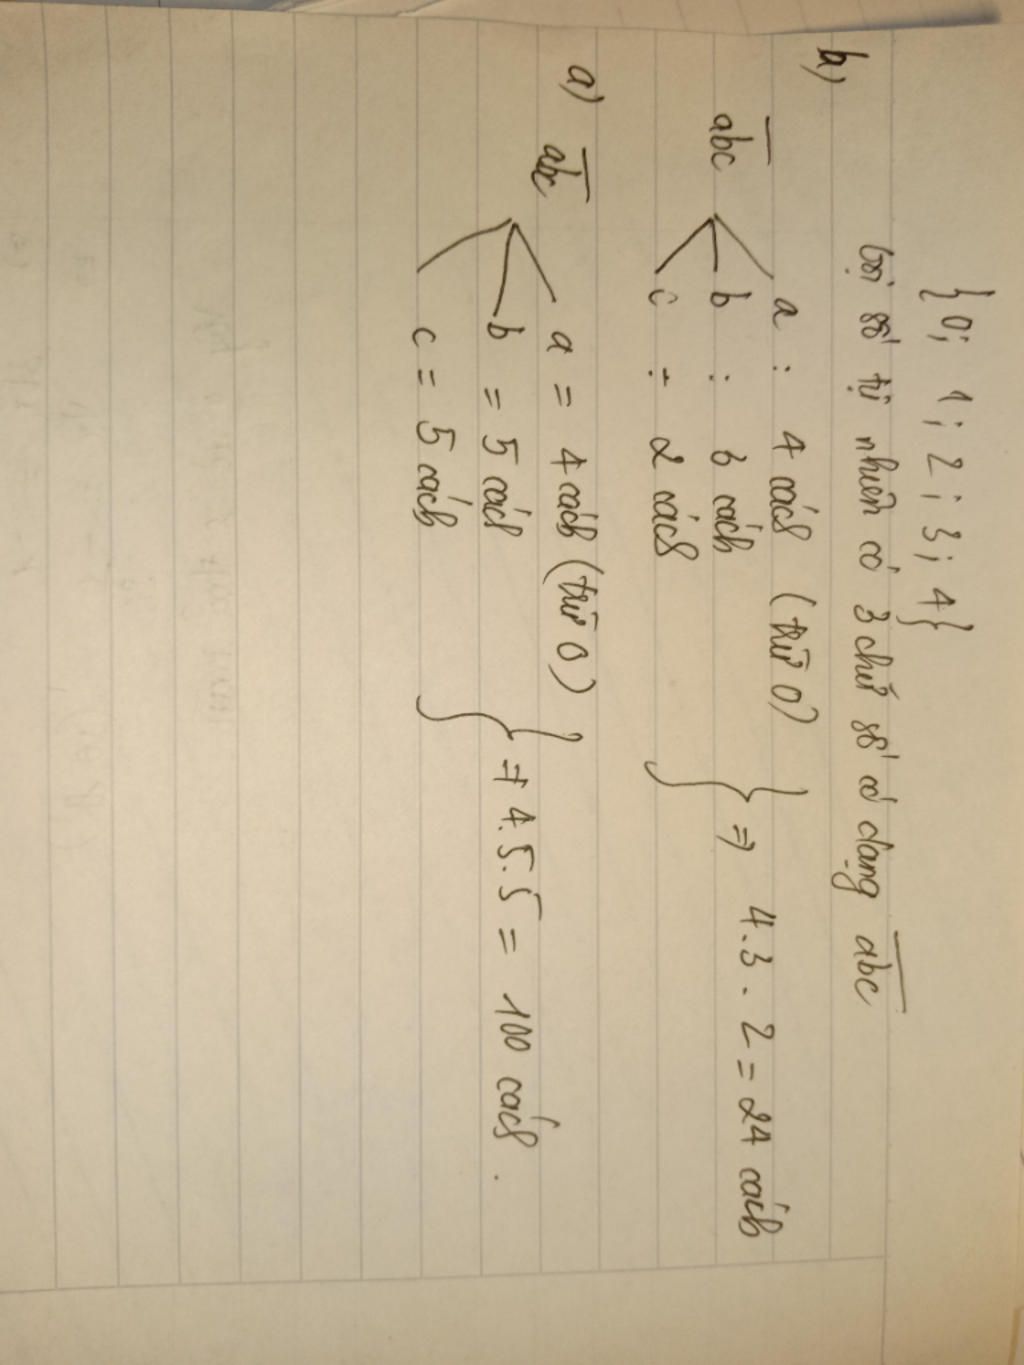 {0; 1; 2; 3; 4}
Gọi số tự nhiên có 3 chữ số có dạng abc
b)
a : 4 cách (trừ 0)
abc b : 3 cách } => 4.3.2 = 24 cách
c : 2 cách
a)
a = 4 cách (trừ 0)
abc b = 5 cách } => 4.5.5 = 100 cách.
c = 5 cách